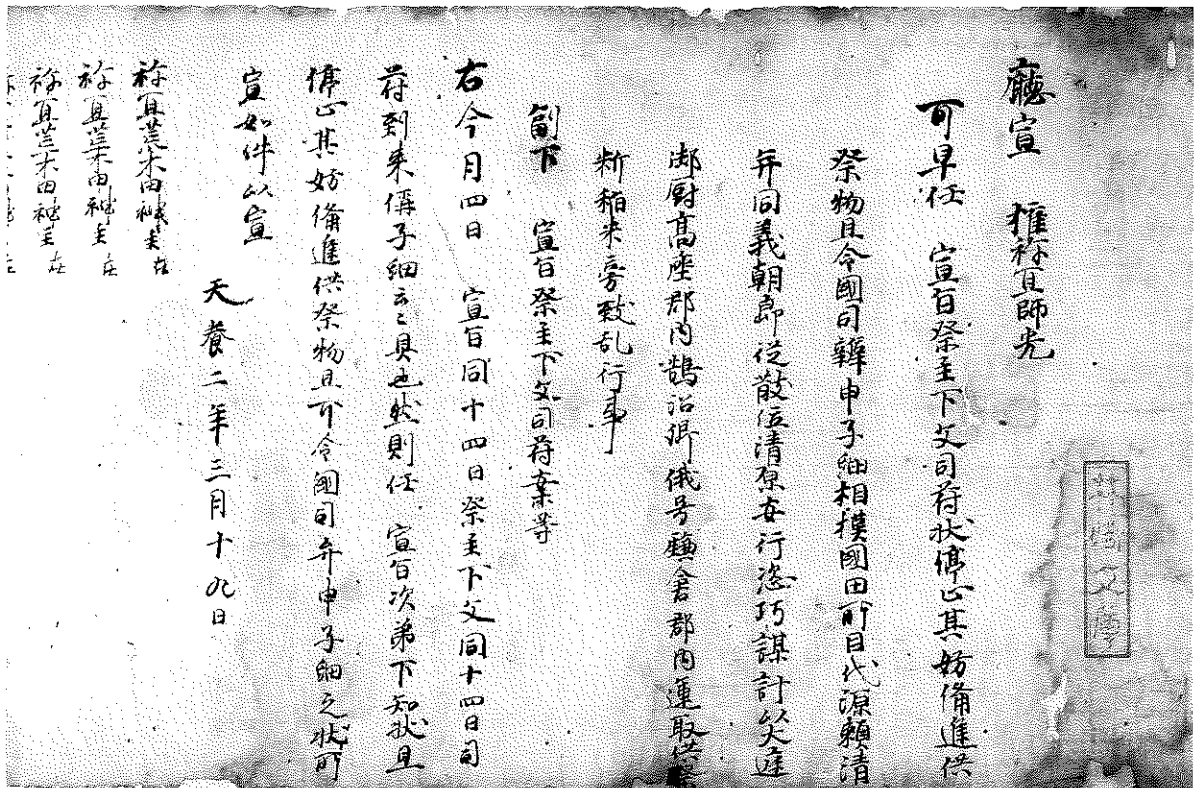 廳宣　權祢宜師光
可早任　宣旨祭主下文司符状停止其妨備進供
祭物且令國司辨申子細相模國田所目代源頼清
并同義朝郎従散位清原安行恣巧謀計以大庭
御厨髙座郡内鵠沼郷俄号鎌倉郡内運取供祭
析稲米旁致乱行事
副下　宣旨祭主下文司符案等
右今月四日　宣旨同十四日祭主下文同十四日司
符到来偁子細云々具也然則任　宣旨次第下知状且
停止其妨備進供祭物且可令國司弁申子細之状所
宣如件以宣
天養二年三月十九日
祢宜荒木田神主在
祢宜荒木田神主在
祢宜荒木田神主在